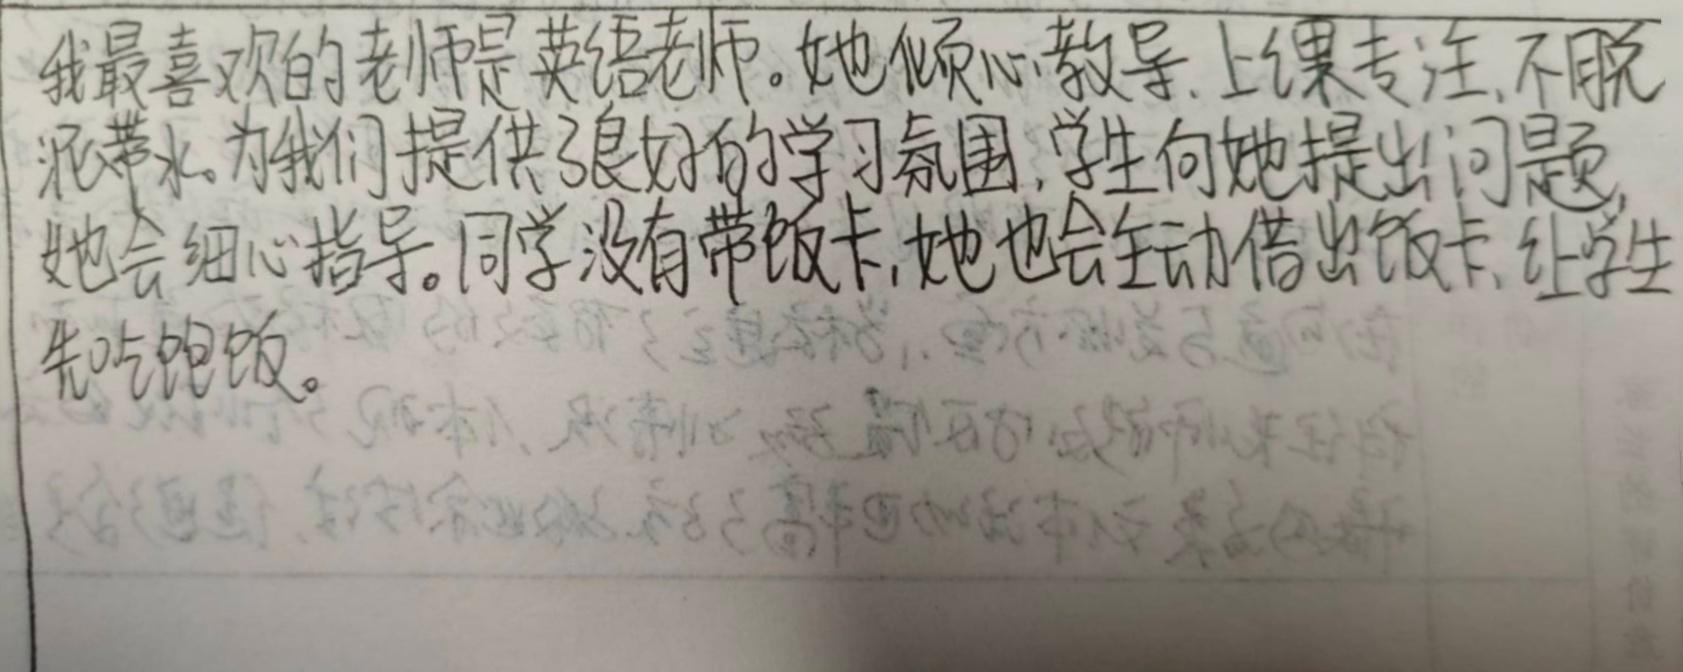 我最喜欢的老师是英语老师。她倾心教导,上课专注,不脱
泥带水。为我们提供了良好的学习氛围,学生向她提出问题,
她会细心指导。同学没有带饭卡,她也会主动借出饭卡,让学生
先吃饱饭。